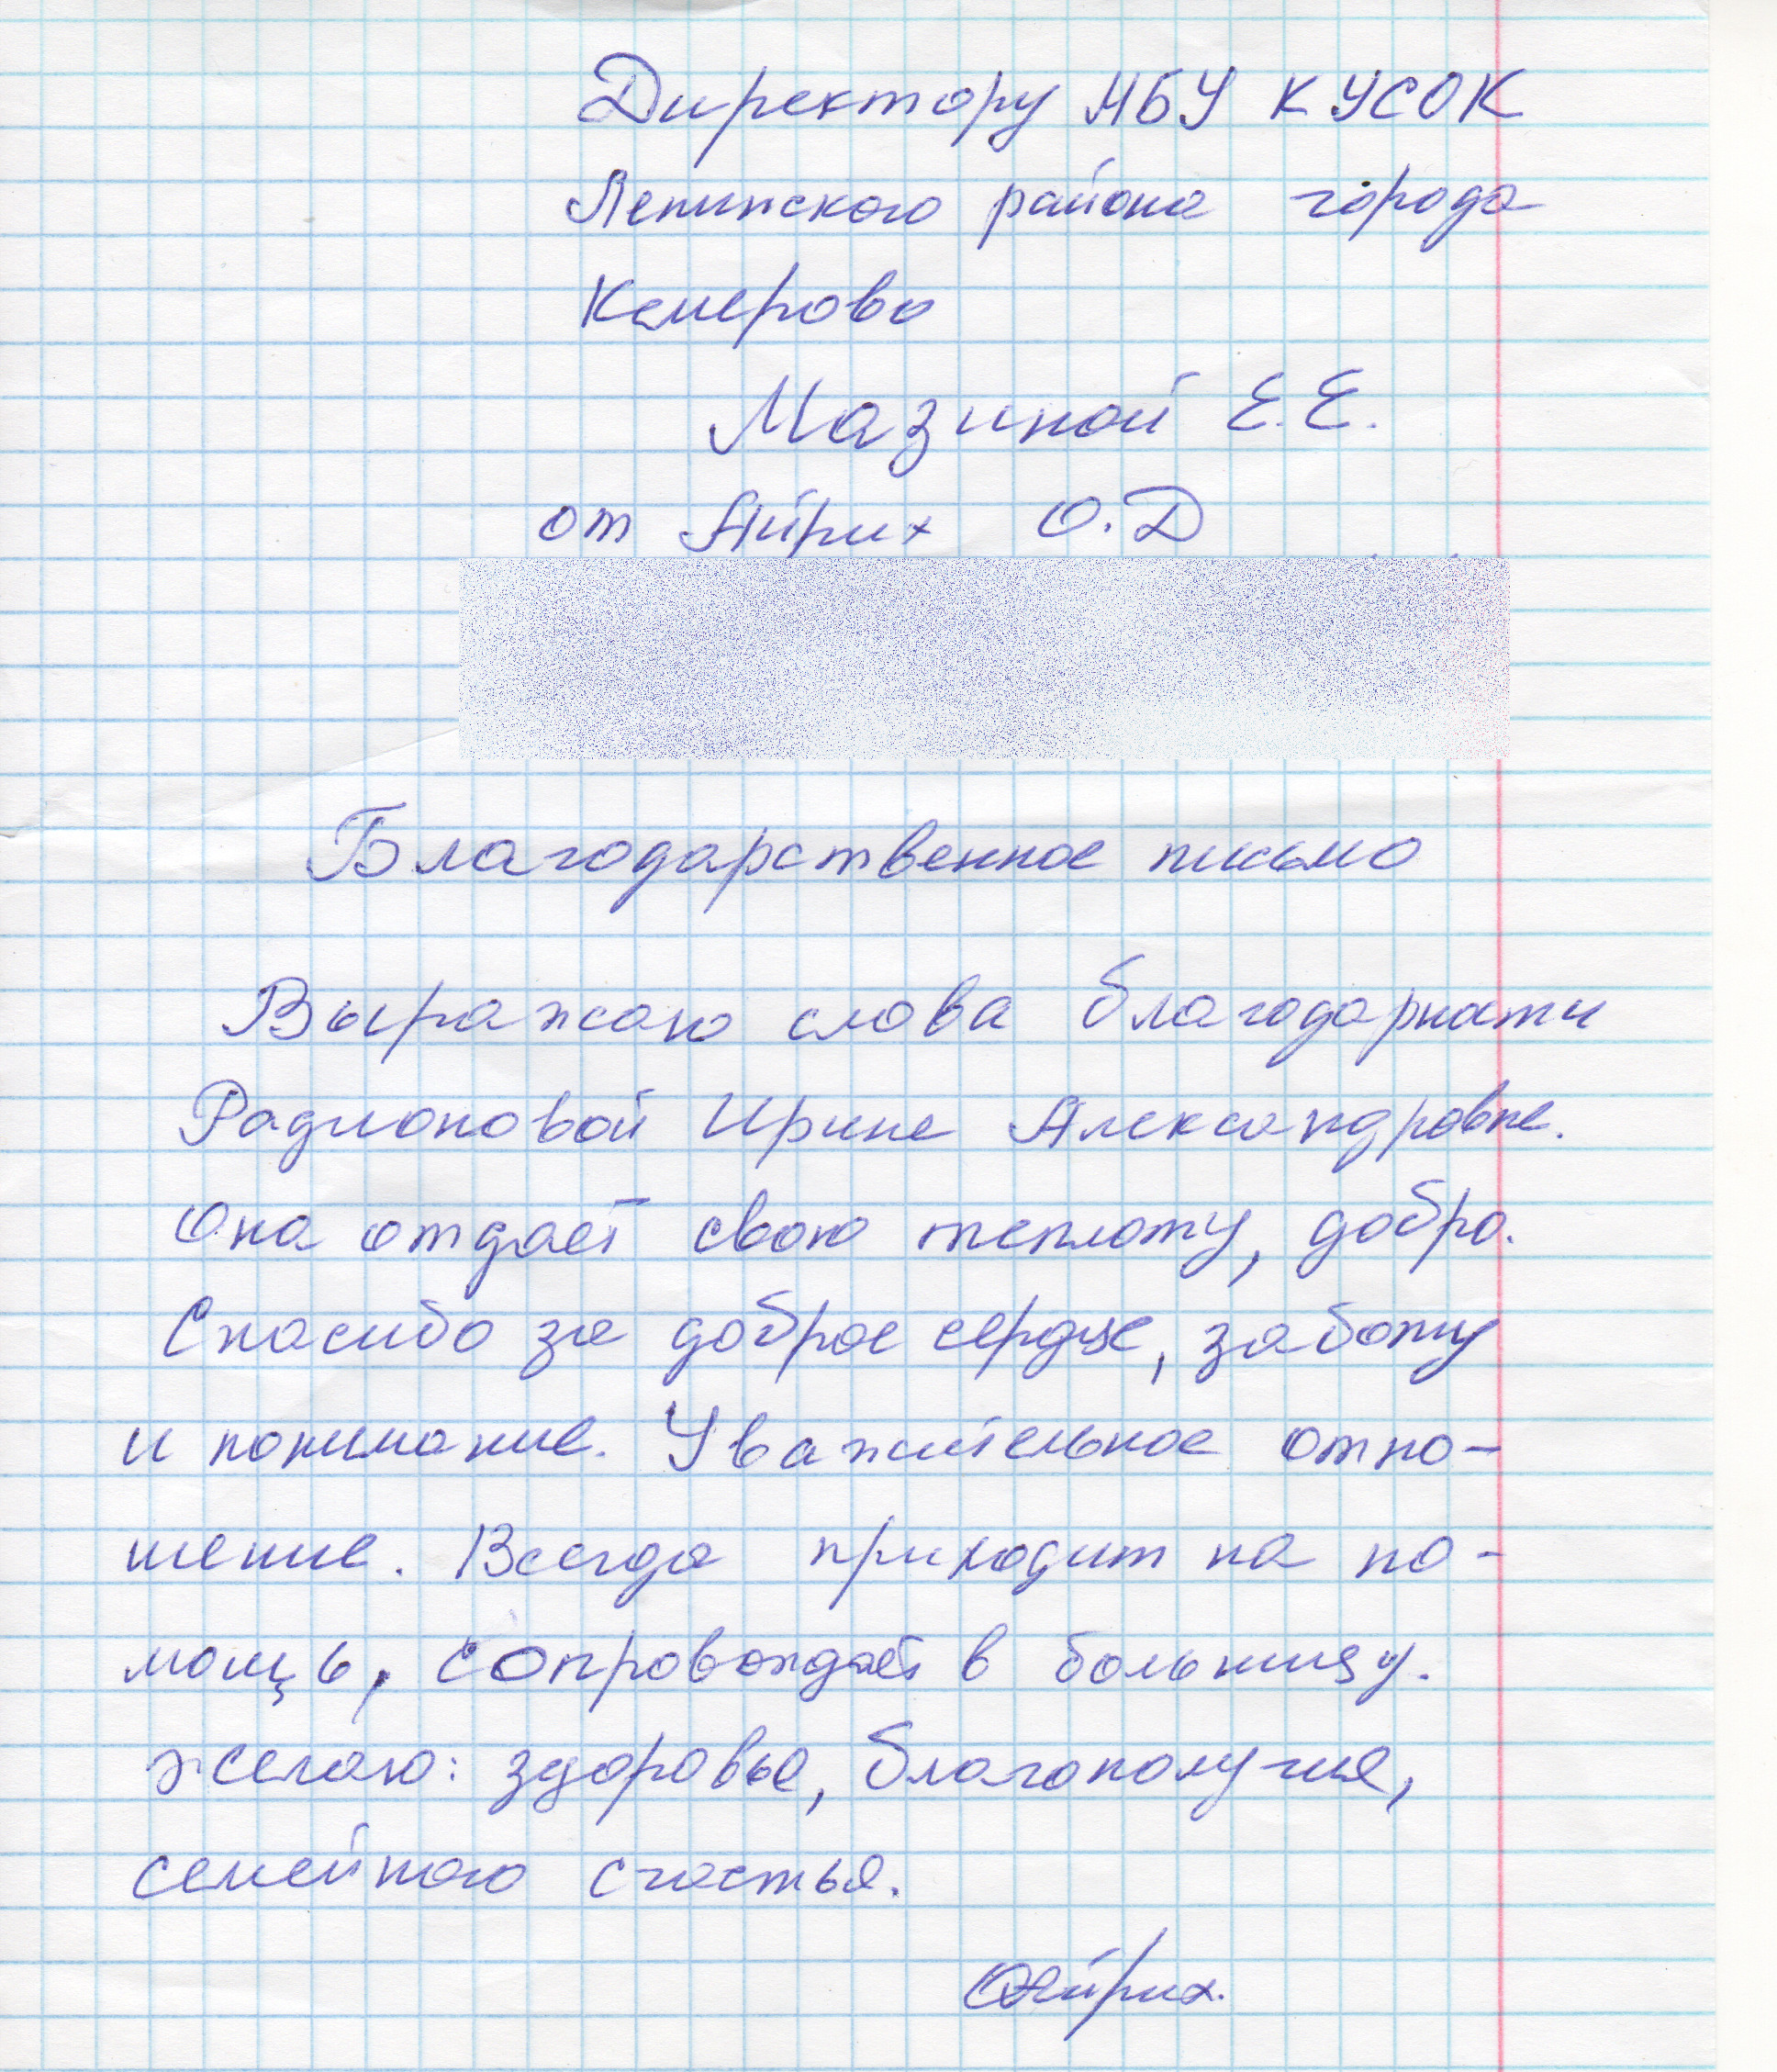 Директору МБУ КУСОК
Ленинского района города
Кемерово
Мазиной Е.Е.
от Айрих О.Д
Благодарственное письмо
Выражаю слова благодарности
Радионовой Ирине Александровне.
Она отдает свою теплоту, добро.
Спасибо за доброе сердце, заботу
и понимание. Уважительное отно-
шение. Всегда приходит на по-
мощь, сопровождает в больницу.
желаю: здоровья, благополучия,
семейного счастья.
Айрих.